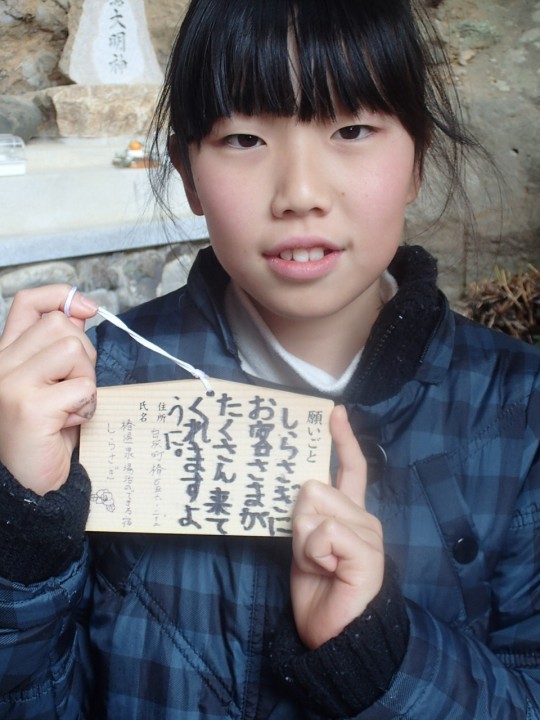 大明神
願いごと
しらさぎに
お客さまが
たくさん来て
くれますよ
うに。
住所
氏名
しらさぎ